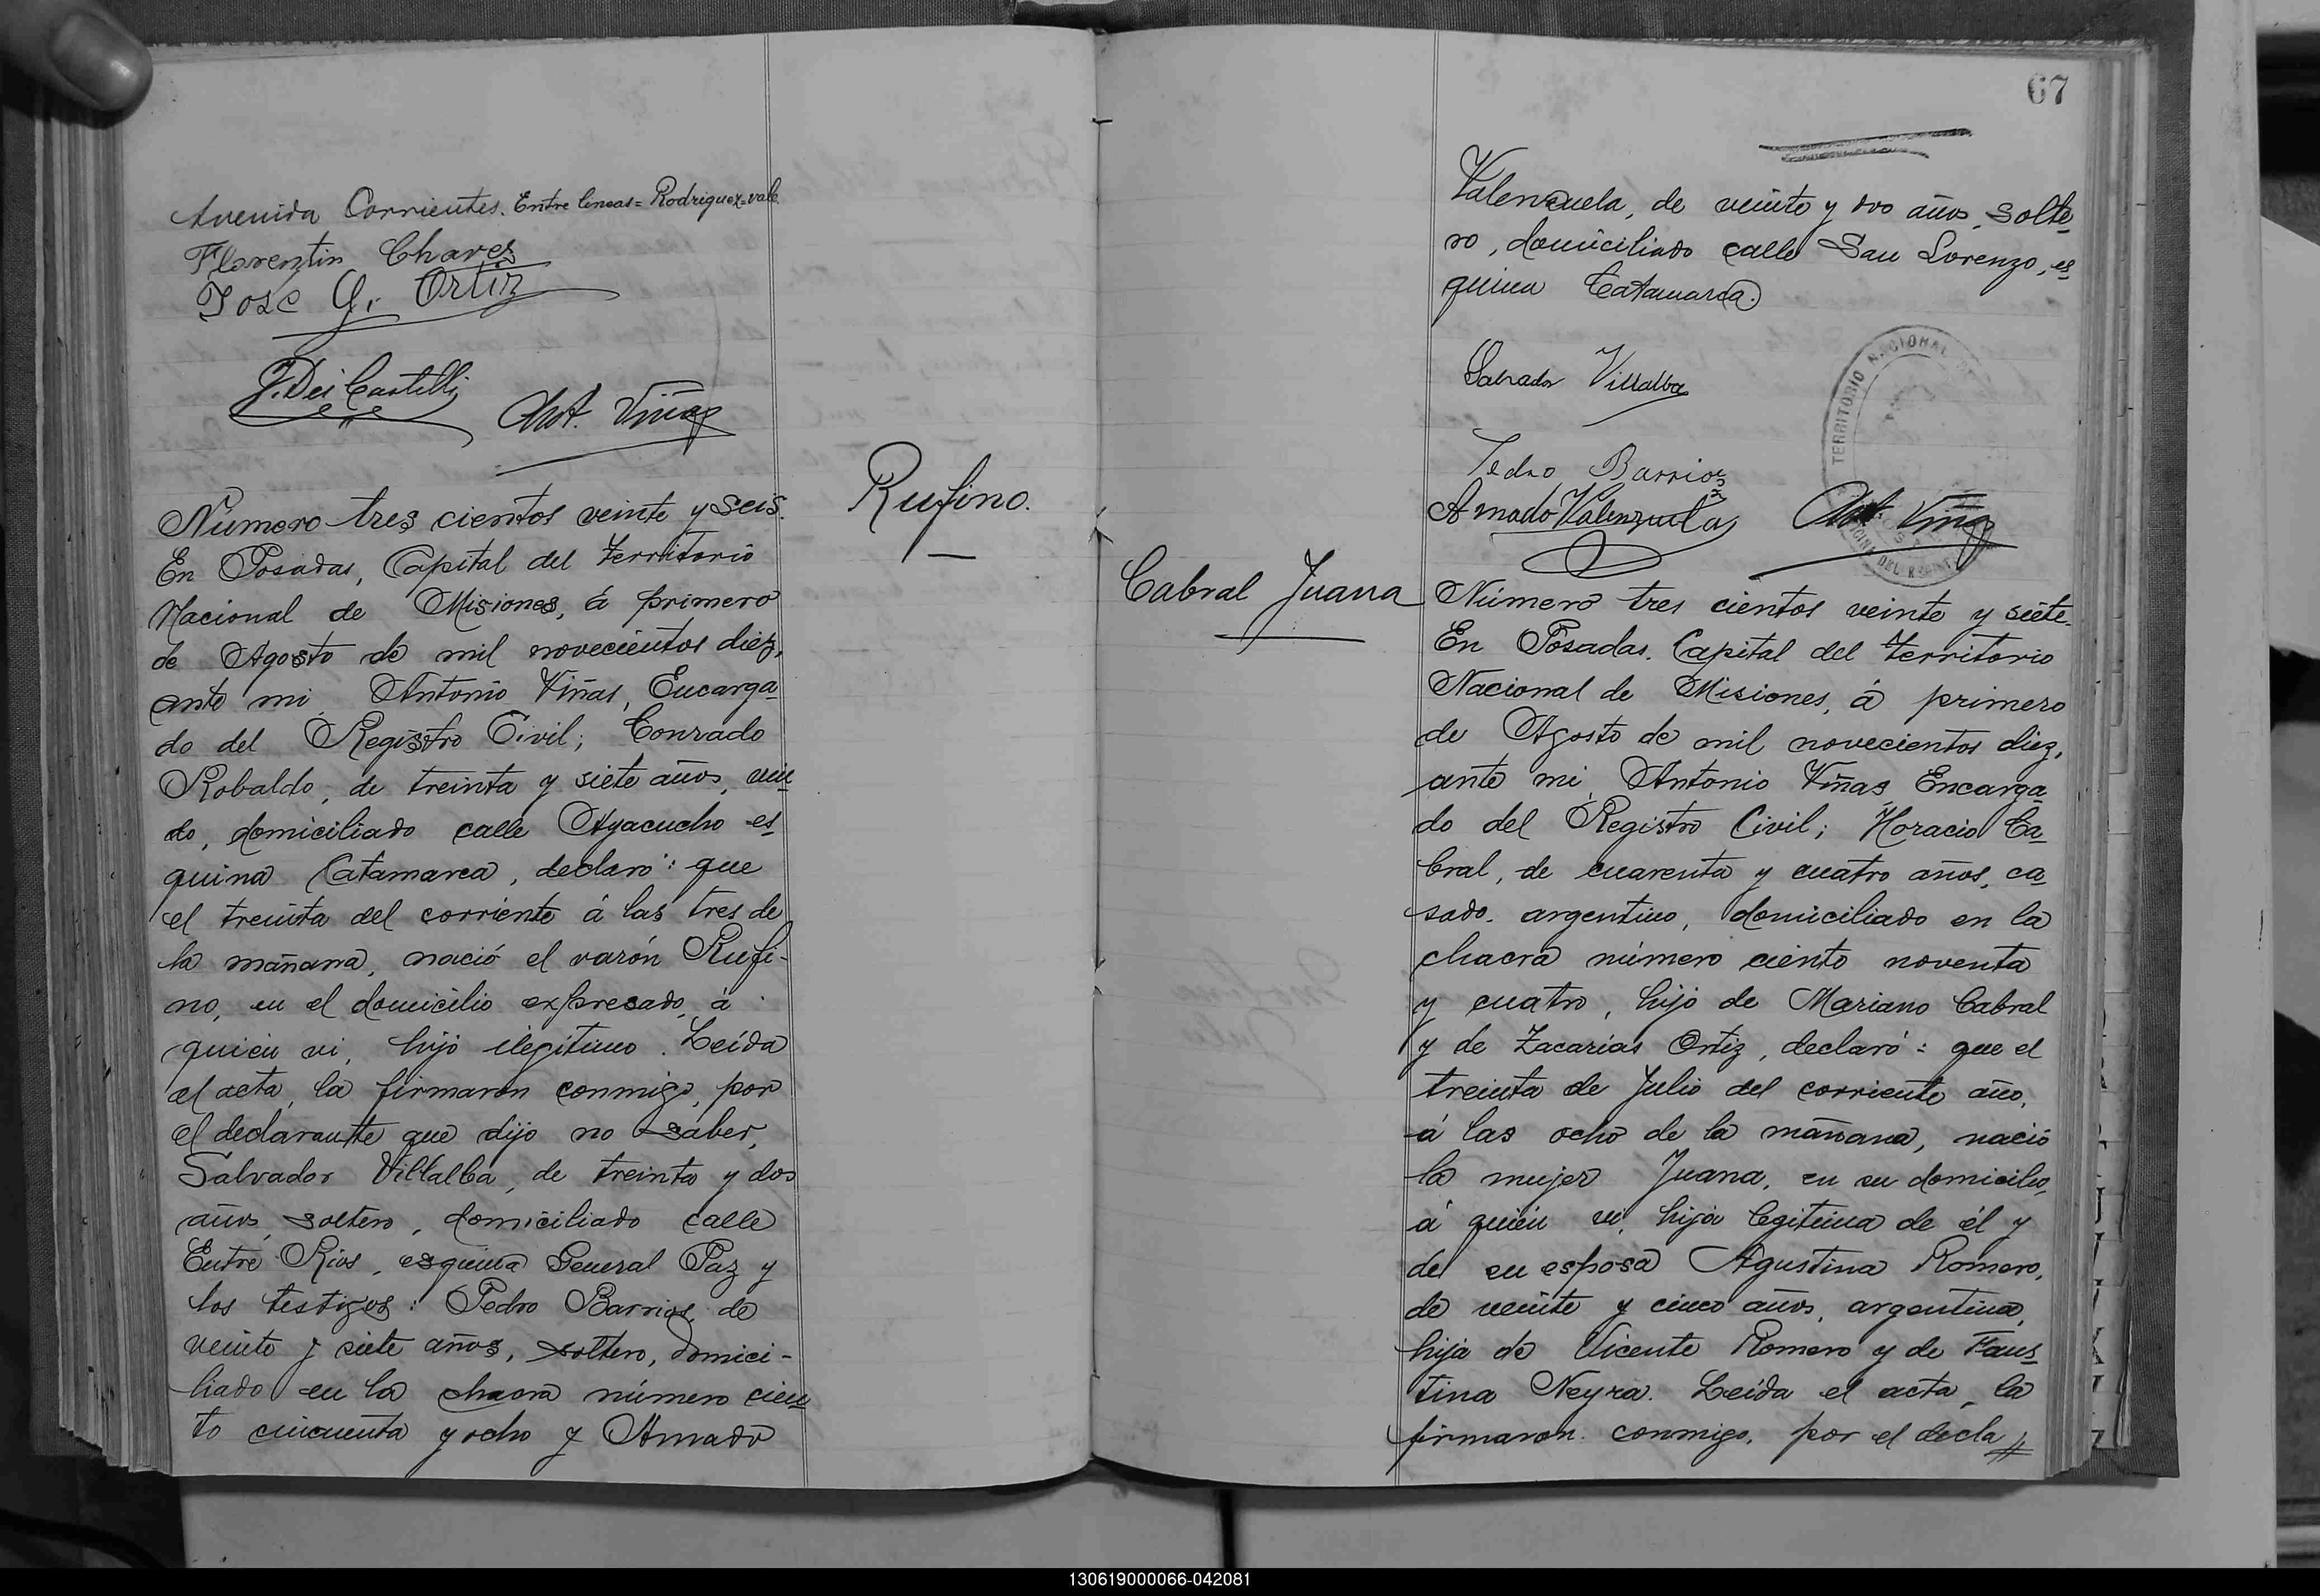 Avenida Corrientes. Entre lineas = Rodriguez = vale.
Florentin Chaves
Jose G. Ortiz
J. Dei Castelli
Ant. Viñas
Rufino.
Número tres cientos veinte y seis.
En Posadas, Capital del Territorio
Nacional de Misiones, á primero
de Agosto de mil novecientos diez,
ante mi Antonio Viñas, Encarga
do del Registro Civil; Conrado
Robaldo, de treinta y siete años, viu
do, domiciliado calle Ayacucho es
quina Catamarca, declaró: que
el treinta del corriente á las tres de
la mañana, nació el varón Rufi-
no, en el domicilio expresado, á
quien vi, hijo ilegitimo. Leída
el acta, la firmaron conmigo, por
el declarante que dijo no saber,
Salvador Villalba, de treinta y dos
años, soltero, domiciliado calle
Entre Rios, esquina General Paz y
los testigos: Pedro Barrios, de
veinte y siete años, soltero, domici-
liado en la chacra número cien
to cincuenta y ocho y Amado
67
Valenzuela, de veinte y dos años, solte
ro, domiciliado calle San Lorenzo, es
quina Catamarca.
Salvador Villalba
Pedro Barrios
Amado Valenzuela
Ant. Viñas
TERRITORIO NACIONAL
Cabral Juana
Número tres cientos veinte y siete.
En Posadas, Capital del Territorio
Nacional de Misiones, á primero
de Agosto de mil novecientos diez,
ante mi Antonio Viñas Encarga
do del Registro Civil; Horacio Ca
bral, de cuarenta y cuatro años, ca
sado, argentino, domiciliado en la
chacra número ciento noventa
y cuatro, hijo de Mariano Cabral
y de Zacarias Ortiz, declaró: que el
treinta de Julio del corriente año,
á las ocho de la mañana, nació
la mujer Juana, en su domicilio,
á quien vi, hija legitima de él y
de su esposa Agustina Romero,
de veinte y cinco años, argentina,
hija de Vicente Romero y de Faus
tina Neyra. Leída el acta, la
firmaron conmigo, por el decla
130619000066-042081